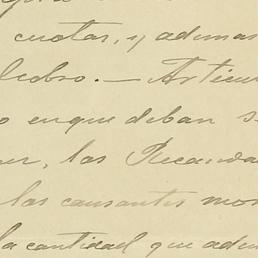 cuotas, y ademas
cobro. — Articu
o en que deban s
los Recauda
las causantes mo
la cantidad que ade